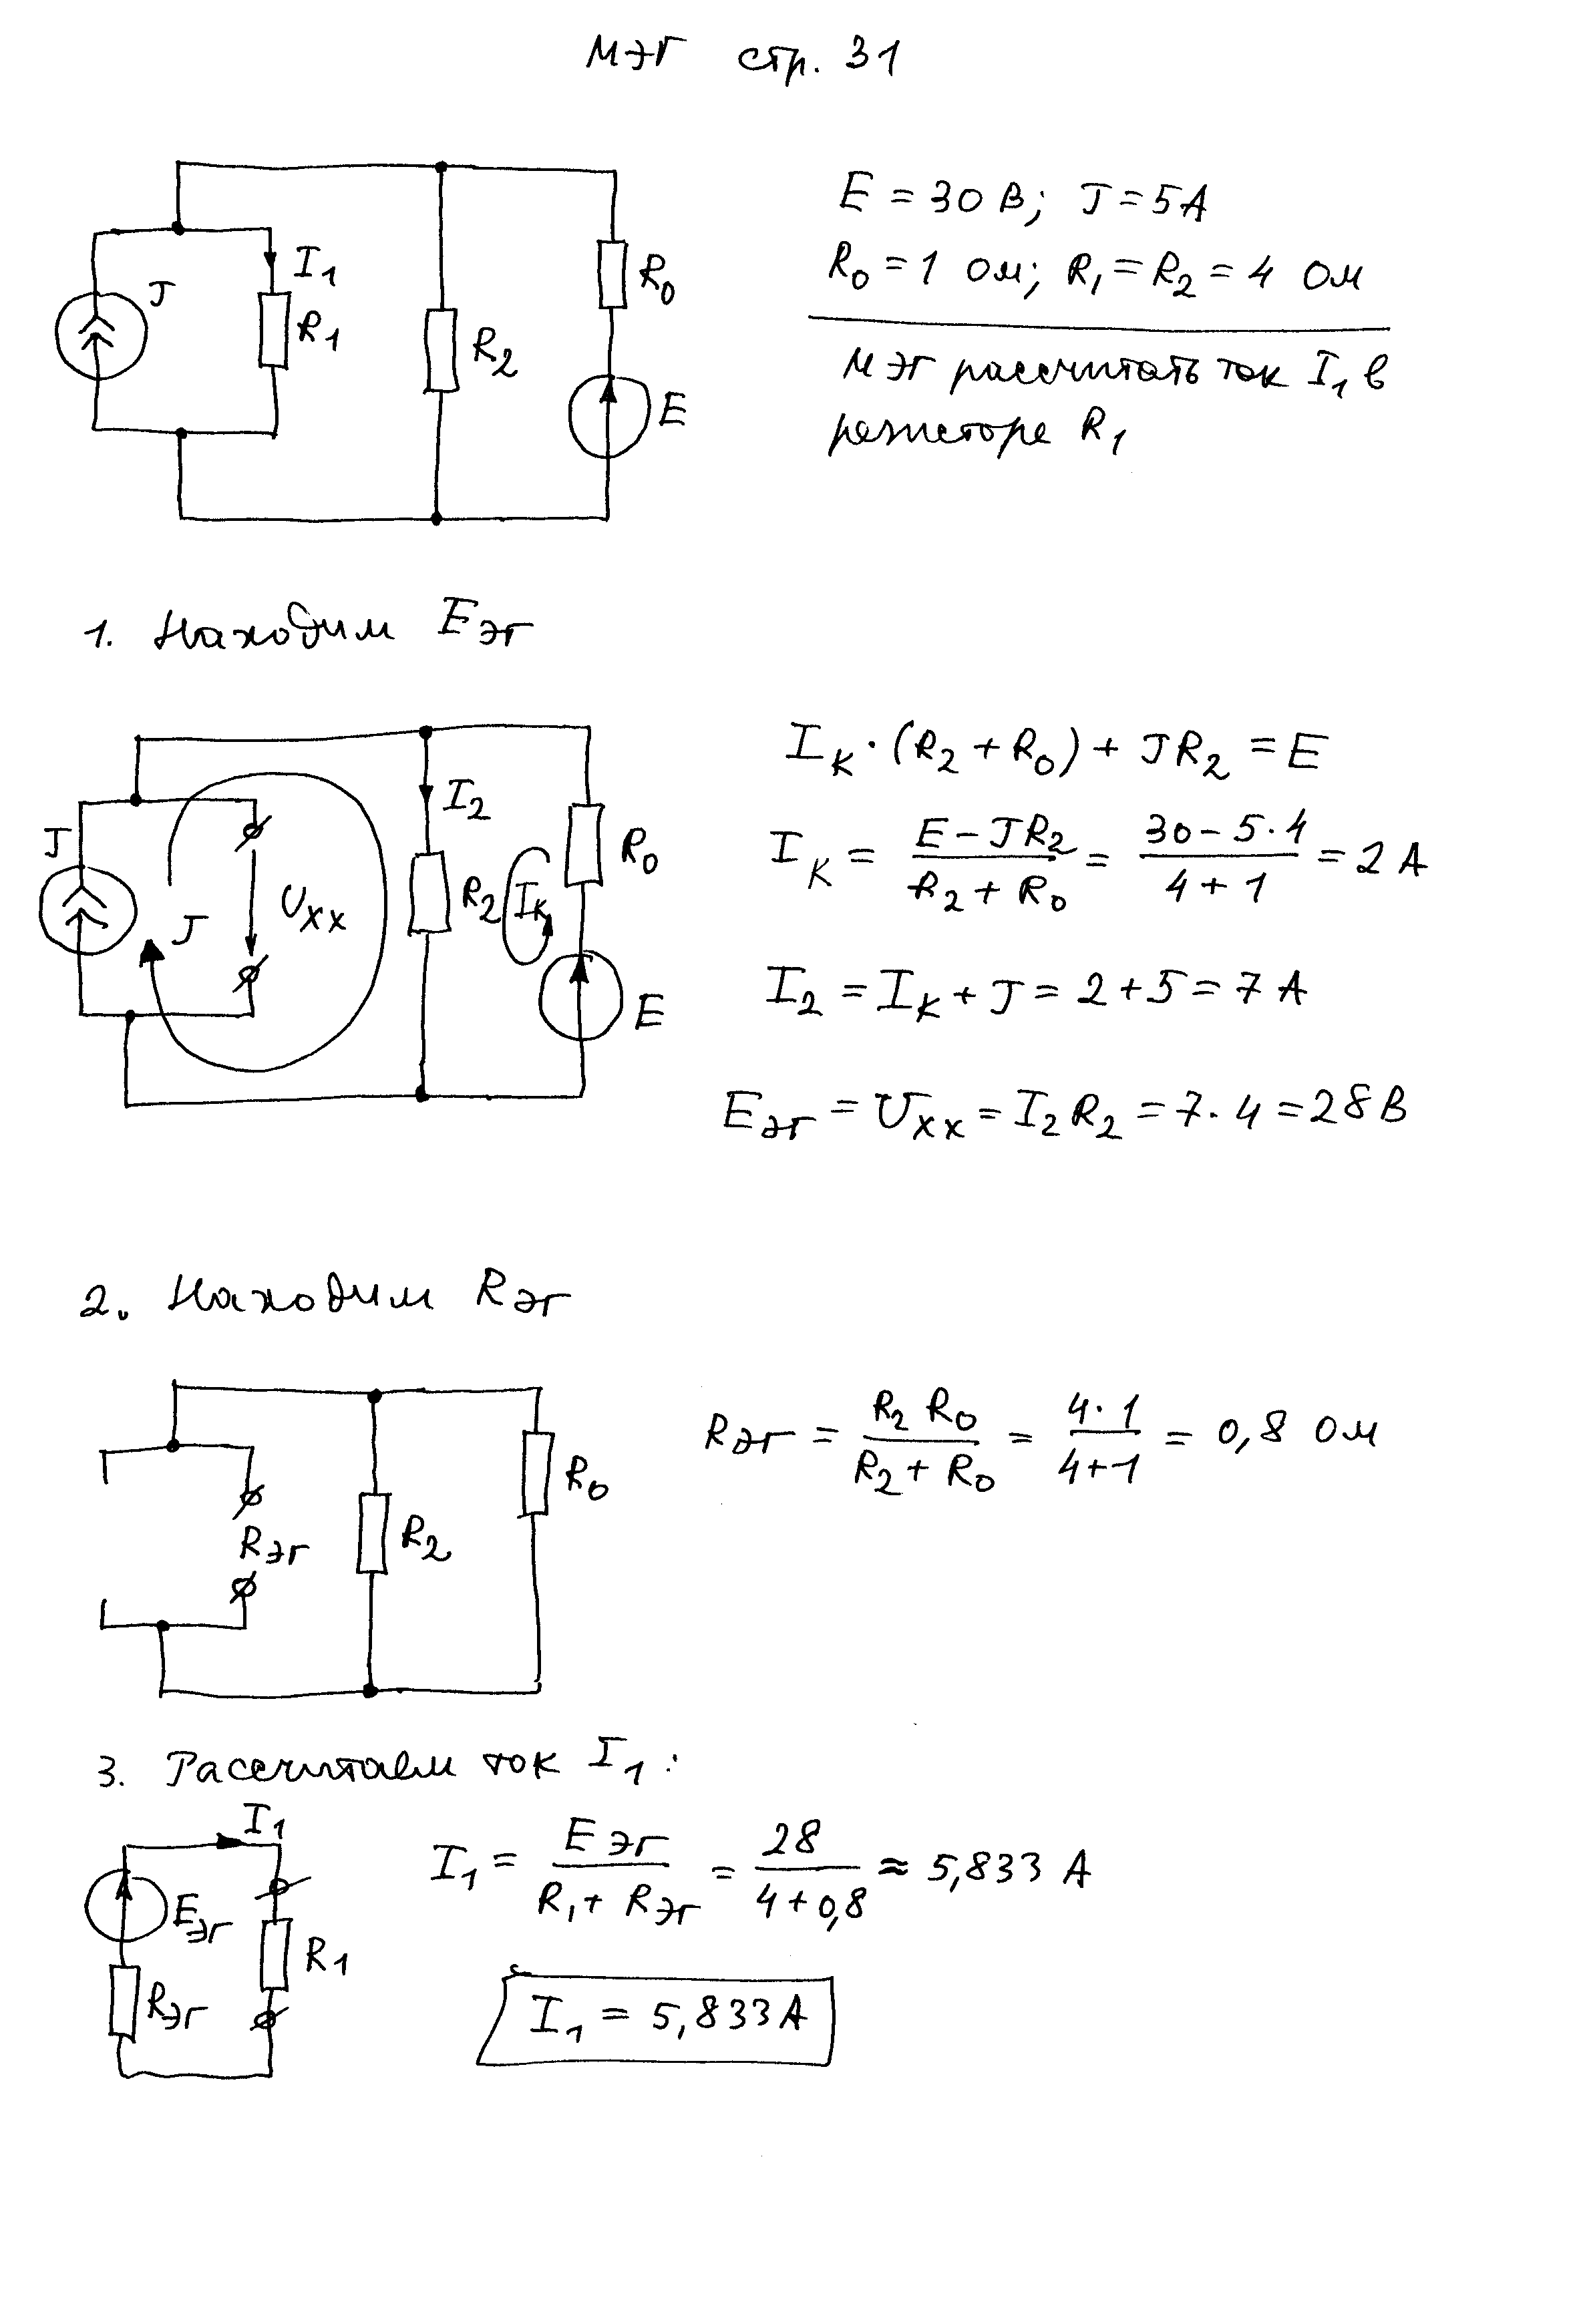 МЭГ стр. 31
J
I₁
R₁
R₂
R₀
E
E = 30 В; J = 5 А
R₀ = 1 Ом; R₁ = R₂ = 4 Ом
МЭГ рассчитать ток I₁ в
резисторе R₁
1. Находим Eэг
J
J
Uхх
I₂
R₂
Iк
R₀
E
Iк · (R₂ + R₀) + JR₂ = E
Iк = (E − JR₂)/(R₂ + R₀) = (30 − 5·4)/(4 + 1) = 2 А
I₂ = Iк + J = 2 + 5 = 7 А
Eэг = Uхх = I₂R₂ = 7·4 = 28 В
2. Находим Rэг
Rэг
R₂
R₀
Rэг = (R₂ R₀)/(R₂ + R₀) = (4·1)/(4+1) = 0,8 Ом
3. Рассчитаем ток I₁:
I₁
Eэг
Rэг
R₁
I₁ = Eэг/(R₁ + Rэг) = 28/(4 + 0,8) ≈ 5,833 А
I₁ = 5,833 А